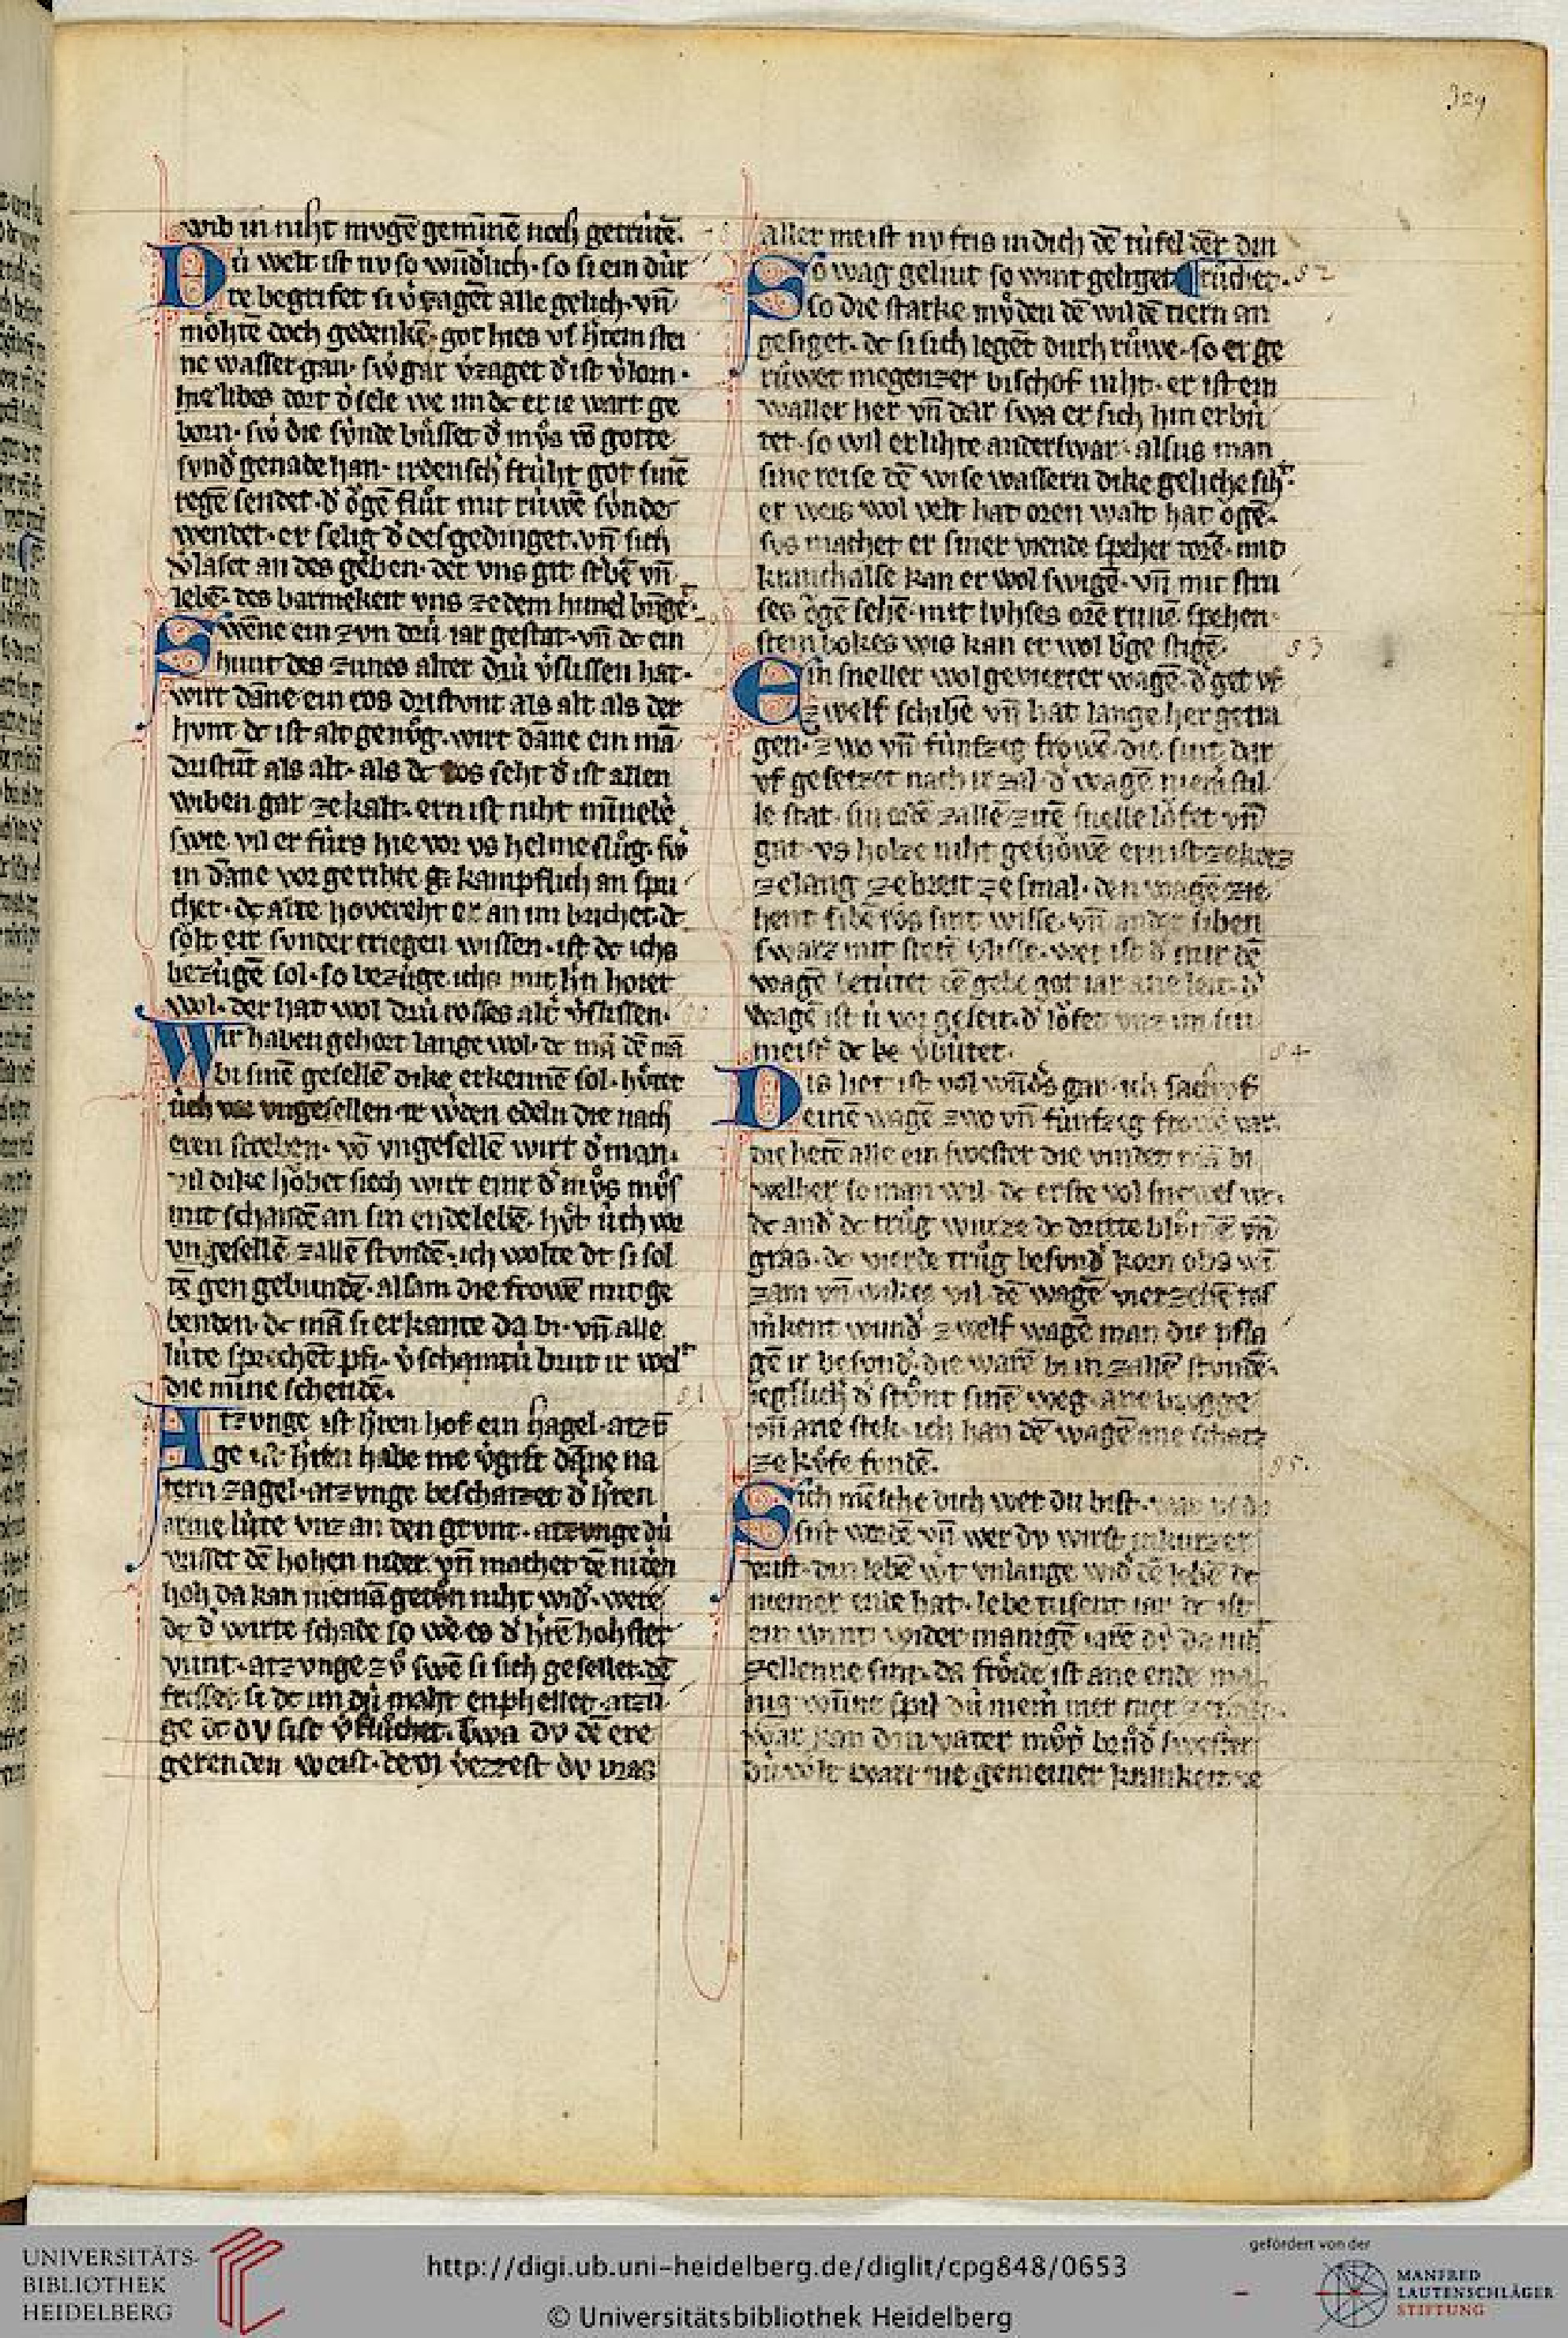 329
wib in niht mvgē geminnē noch getrutē.
Dů welt ist nv so wūdˀlich· so si ein dúr
re begrifet si vˀzagēt alle gelich· vn̄
mohtē doch gedenkē· got hies vs hˀtem stei
ne wasser gan· swˀ gar vˀzaget dˀ ist vˀlorn·
hie libes dort dˀ sele we im dc er ie wart ge
born· swˀ die súnde bússet dˀ mv̊s vō gotte
svndˀ genade han· irdensch frúht got sinē
regē sendet· dˀ ȯgē flůt mit rúwē súnde
wendet· er selig dˀ des gedinget· vn̄ sich
vˀlaset an des gebēn· der vns git stˀbē vn̄
lebē· des barmekeit vns ze dem himel bringē·
Swēne ein zvn drú iar gestat· vn̄ dc ein
hunt des zunes alter drú vˀslissen hat·
wirt dāne ein ros dristvnt als alt als der
hvnt dc ist alt genůg· wirt dāne ein mā
dristūt als alt· als dc ros seht dˀ ist allen
wiben gar ze kalt· ern ist niht mīnebˀe
swie vil er fúrs hie vor vs helme slůg· swˀ
in dāne vor gerihte kampflich an spri
chet· dc alte hovereht er an im brichet· dc
solt err sunder triegen wissen· ist dc ichs
bezúgē sol· so bezúge ichs mit hˀrn hoiet
wol· der hat wol drú rosses altˀ vˀslissen·
Wir haben gehort lange wol· dc mā dē mā
bi sinē gesellē dike erkennē sol· hv̊tet
úch vor vngesellen· ir wˀden edeln die nach
eren streben· vō vngesellē wirt dˀ man·
vil dike hȯbet siech wirt einr dˀ mv̊s mv̊s
mit schandē an sin ende lebē· hv̊t úch vor
vn gesellē zallē stvndē· ich wolte dc si sol
tē gen gebundē· alsam die frowē mit ge
benden· dc mā si erkante da bi· vn̄ alle
lúte sprechēt pfi· vˀschamtú brut ir welt
die mīne schendē·
Atzvnge ist hˀren hof ein hagel· atzv̄
ge ist hˀren habe me vˀgift dāne na
tern zagel· atzvnge beschatzet dˀ hˀren
arme lúte vnz an den grvnt· atzvnge dú
wisset dē hohen nider· vn̄ machet dē nidˀen
hoh da kan niemā getůn niht widˀ· were
dc dˀ wirte schade so we es dˀ hˀrē hohster
vunt· atzvnge zv̊ swē si sich gesellet· dē
frisset si dc im dú maht enphellet· atzū
ge dc dv sist vˀflůchet· swa dv dē ere
gerenden weist· dem vˀezzest dv vras
aller meist nv fris in dich dē túfel der din
So wag gelinit so wint geliget ¶ růchet· 82
so die starke mv̊den dē wildē tiern an
gesiget· dc si sich legēt durh růwe· so er ge
růwet megenzer bischof niht· er ist ein
waller her vn̄ dar swa er sich hin erbú
tet· so wil er lihte anderswar· alsus man
sine reise dē wise wassern dike geliche siht·
er weis wol velt hat oren walt hat ȯgē·
svs machet er siner viende speher torē· mit
kranchalse kan er wol swigē· vn̄ mit stru
ses ȯgē sehē· mit lvhses orē runē spehen·
steinbokes wis kan er wol bˀge stigē· 83
Ein sneller wol gevierter wagē· dˀ get vf
zwelf schibē vn̄ hat lange her getra
gen· zwo vn̄ fúnfzig frowē· die sint dar
vf gesetzet nach ir zal· dˀ wagē niemˀ stil
le stat· sin ordē zallē zitē snelle lȯfet vn̄
gat· vs holze niht gehȯwē ern ist ze kurz
ze lang ze breit ze smal· den wagē zie
hent sibē ros sint wisse· vn̄ ander siben
swarz mit stetē vlisse· wer ist dˀ mir dē
wagē betútet dē gebe got iar ane leit· dˀ
wagē ist ú vor geseit· dˀ lȯfet vnz im sin
meistˀ dc be vˀbútet· 84
Dis her ist vol wūdˀs gar· ich sach vf
einē wagē zwo vn̄ fúnfzig frowē var·
die hetē alle ein swester die vindet mā bi
welher so man wil· dc erste vol snewes wc·
dc andˀ dc trůg wurze dc dritte blv̊mē vn̄
gras· dc vierde trůg besvndˀ korn obs wī
zam vn̄ wildes vil· dē wagē vierzehē ros
mˀkent wundˀ· zwelf wagē man die pfla
gē ir besondˀ· die warē bi in zallē stvndē·
iegslich dˀ stv̊nt sinē weg· ane brugge
vn̄ ane stek· ich han dē wagē ane schatz
ze kȯfe fundē· 85·
Sich mēsche dich wer du bist·
sist wordē vn̄ wer dv wirst in kurzer
vrist· din lebē wˀt vnlange widˀ dē lebē dc
niemer ende hat· lebe tusent iar dc ist
ein wint wider manigē iarē dv da niht
zellenne sint· da frȯide ist ane ende ma
nig wūne spil dú niemˀ mer
war kan din vater mv̊tˀ brůdˀ swester